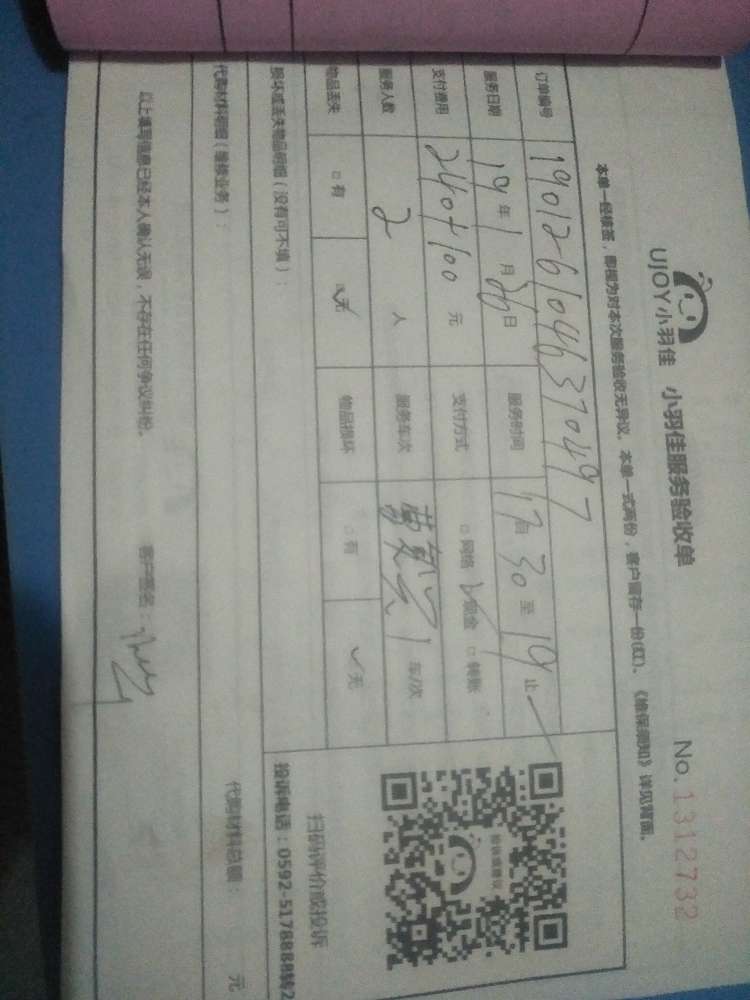 UJOY小羽佳 小羽佳服务验收单 No.1312732
本单一经核签，即视为对本次服务验收无异议。本单一式两份，客户留存一份(红)。《维保须知》详见背面。
订单编号 1901261046370497
服务日期 19年1月26日 服务时间 17自30至19止
支付费用 240+100元 支付方式 □网络 ✓现金 □转账
服务人数 2人 服务车次 1车/次
物品丢失 □有 ✓无 物品损坏 □有 ✓无
投诉或建议
扫码评价或投诉
投诉电话：0592-5178888转2
损坏或丢失物品明细（没有可不填）：
代购材料明细（维修业务）： 代购材料总额： 元
以上填写信息已经本人确认无误，不存在任何争议纠纷。 客户签名：